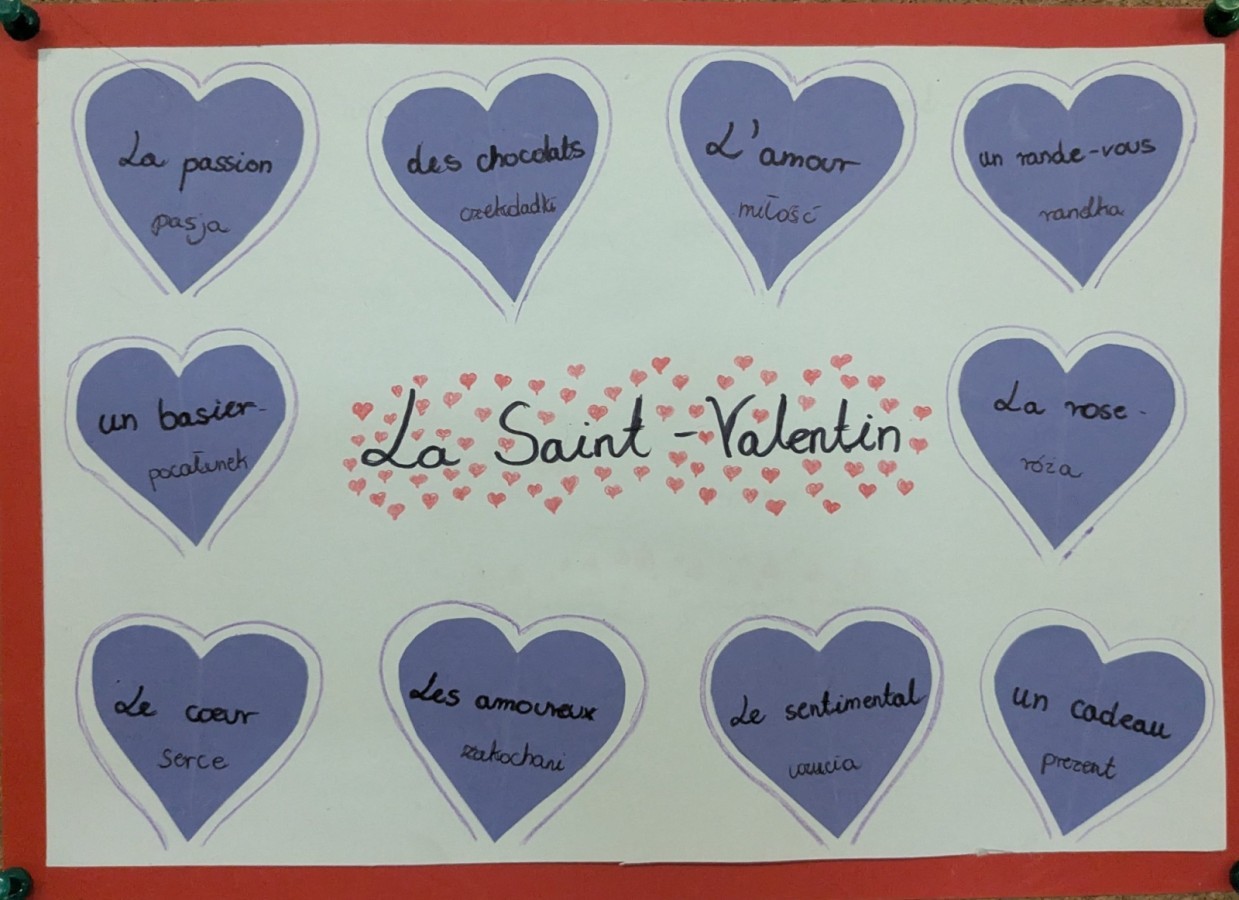 La passion
pasja
des chocolats
czekoladki
L'amour
miłość
un rande-vous
randka
un basier
pocałunek
La Saint-Valentin
La rose
róża
Le cœur
serce
Les amoureux
zakochani
Le sentimental
uczucia
un cadeau
prezent